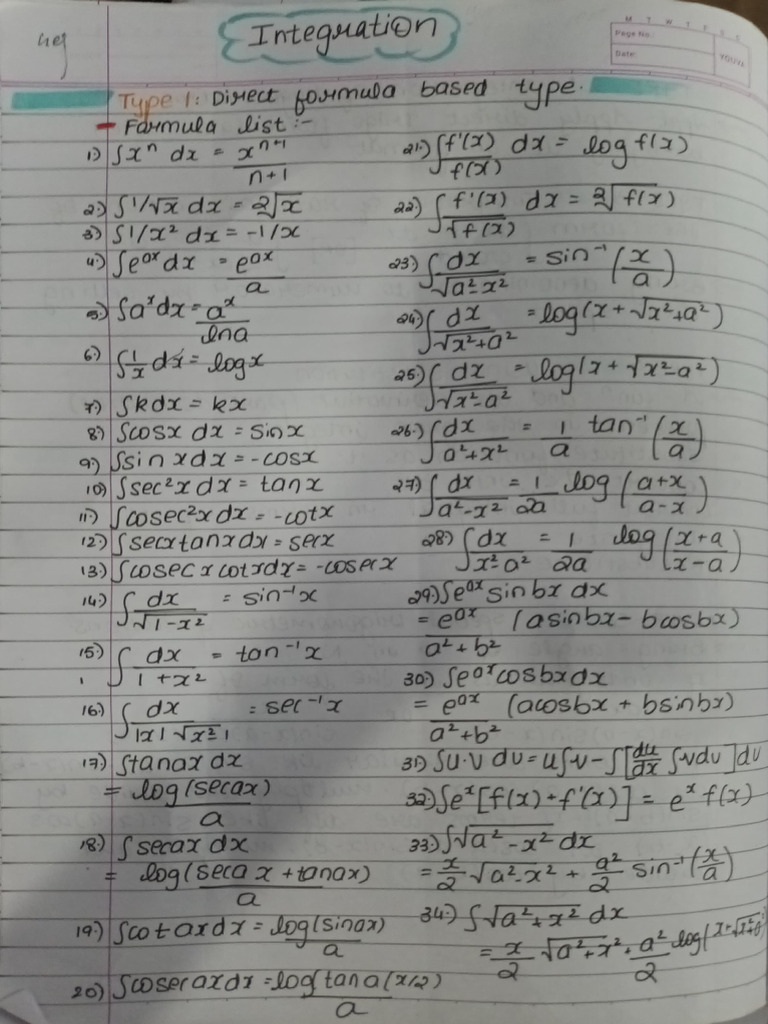 Integration
M T W T F S S
Page No.:
Date:
YOUVA
Type 1: Direct formula based type.
- Formula list :-
1) ∫xⁿ dx = xⁿ⁺¹/n+1
2) ∫1/√x dx = 2√x
3) ∫1/x² dx = -1/x
4) ∫e^ax dx = e^ax/a
5) ∫a^x dx = a^x/lna
6) ∫1/x dx = logx
7) ∫kdx = kx
8) ∫cosx dx = sinx
9) ∫sinxdx = -cosx
10) ∫sec²x dx = tanx
11) ∫cosec²x dx = -cotx
12) ∫secxtanxdx = secx
13) ∫cosecxcotxdx = -cosecx
14) ∫dx/√1-x² = sin⁻¹x
15) ∫dx/1+x² = tan⁻¹x
16) ∫dx/|x|√x²1 = sec⁻¹x
17) ∫tanax dx
= log(secax)/a
18) ∫secax dx
= log(secax+tanax)/a
19) ∫cotaxdx = log(sinax)/a
20) ∫cosecaxdx = log(tana(x/2)/a
21) ∫f'(x)/f(x) dx = log f(x)
22) ∫f'(x)/√f(x) dx = 2√f(x)
23) ∫dx/√a²-x² = sin⁻¹(x/a)
24) ∫dx/√x²+a² = log(x+√x²+a²)
25) ∫dx/√x²-a² = log(x+√x²-a²)
26) ∫dx/a²+x² = 1/a tan⁻¹(x/a)
27) ∫dx/a²-x² = 1/2a log(a+x/a-x)
28) ∫dx/x²-a² = 1/2a log(x+a/x-a)
29) ∫e^ax sinbx dx
= e^ax/a²+b² (asinbx-bcosbx)
30) ∫e^ax cosbxdx
= e^ax/a²+b² (acosbx+bsinbx)
31) ∫u.v dv = u∫v-∫[du/dx ∫vdv]dv
32) ∫e^x[f(x)+f'(x)] = e^x f(x)
33) ∫√a²-x² dx
= x/2 √a²-x² + a²/2 sin⁻¹(x/a)
34) ∫√a²+x² dx
= x/2 √a²+x² + a²/2 log(x+√x²+a²